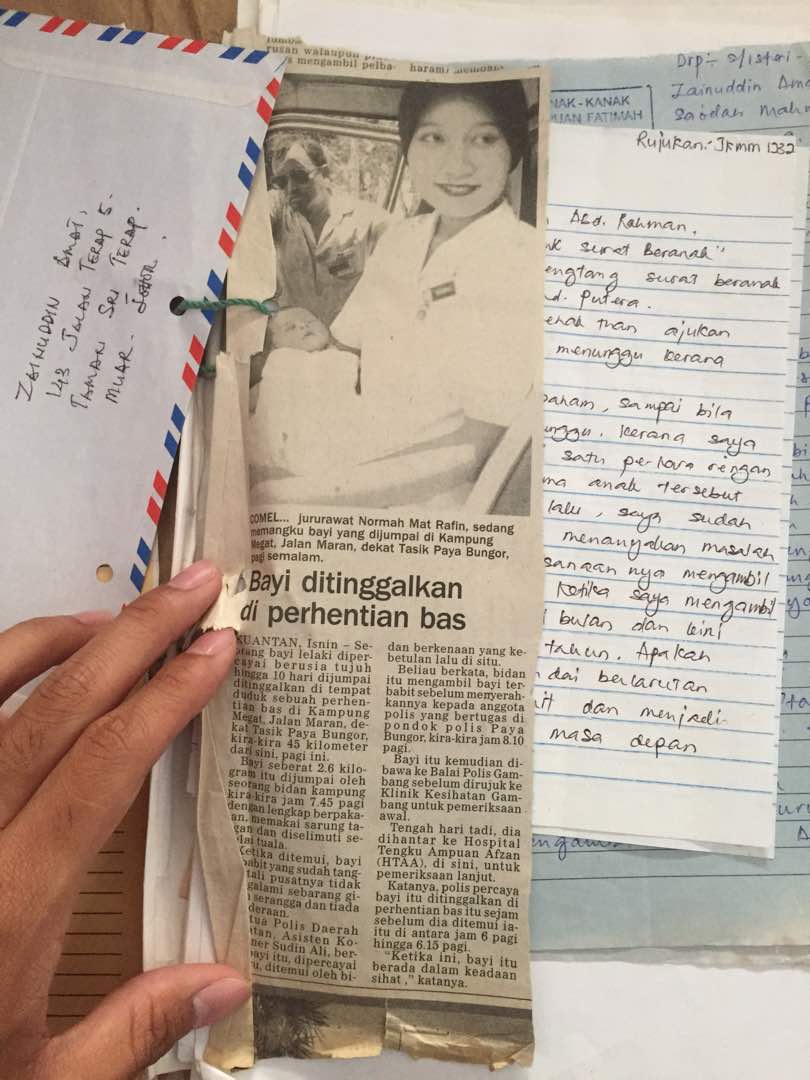 rusan walaupun
s mengambil pelba-
haram
ZAINUDDIN AMAT,
143 JALAN TERAP 5-
TAMAN SRI TERAP.
MUAR. JOHOR.
COMEL... jururawat Normah Mat Rafin, sedang
memangku bayi yang dijumpai di Kampung
Megat, Jalan Maran, dekat Tasik Paya Bungor,
pagi semalam.
Bayi ditinggalkan
di perhentian bas
KUANTAN, Isnin – Se-
orang bayi lelaki diper-
cayai berusia tujuh
hingga 10 hari dijumpai
ditinggalkan di tempat
duduk sebuah perhen-
tian bas di Kampung
Megat, Jalan Maran, de-
kat Tasik Paya Bungor,
kira-kira 45 kilometer
dari sini, pagi ini.
Bayi seberat 2.6 kilo-
gram itu dijumpai oleh
seorang bidan kampung
kira-kira jam 7.45 pagi
dengan lengkap berpaka-
an, memakai sarung ta-
gan dan diselimuti se-
lai tuala.
Ketika ditemui, bayi
babit yang sudah tang-
tali pusatnya tidak
galami sebarang gi-
serangga dan tiada
deraan.
tua Polis Daerah
tan, Asisten Ko-
ner Sudin Ali, ber-
bayi itu, dipercayai
u, ditemui oleh bi-
dan berkenaan yang ke-
betulan lalu di situ.
Beliau berkata, bidan
itu mengambil bayi ter-
babit sebelum menyerah-
kannya kepada anggota
polis yang bertugas di
pondok polis Paya
Bungor, kira-kira jam 8.10
pagi.
Bayi itu kemudian di-
bawa ke Balai Polis Gam-
bang sebelum dirujuk ke
Klinik Kesihatan Gam-
bang untuk pemeriksaan
awal.
Tengah hari tadi, dia
dihantar ke Hospital
Tengku Ampuan Afzan
(HTAA), di sini, untuk
pemeriksaan lanjut.
Katanya, polis percaya
bayi itu ditinggalkan di
perhentian bas itu sejam
sebelum dia ditemui ia-
itu di antara jam 6 pagi
hingga 6.15 pagi.
"Ketika ini, bayi itu
berada dalam keadaan
sihat ," katanya.
NAK-KANAK
UAN FATIMAH
Drp:- S/isteri -
Zainuddin Ama
Saodah Mah
Rujukan:- JKMM 1232
Abd. Rahman.
surat Beranak"
engtang surat beranak
d. Putera.
ehak tuan ajukan
menunggu kerana
paham, sampai bila
unggu. Kerana saya
satu perkara ringan
ma anak tersebut
lalu, saya sudah
menanyakan masalah
sanaan nya mengambil
Ketika saya mengambil
bulan dan kini
tahun. Apakah
dai berlarutan
it dan menjadi
masa depan